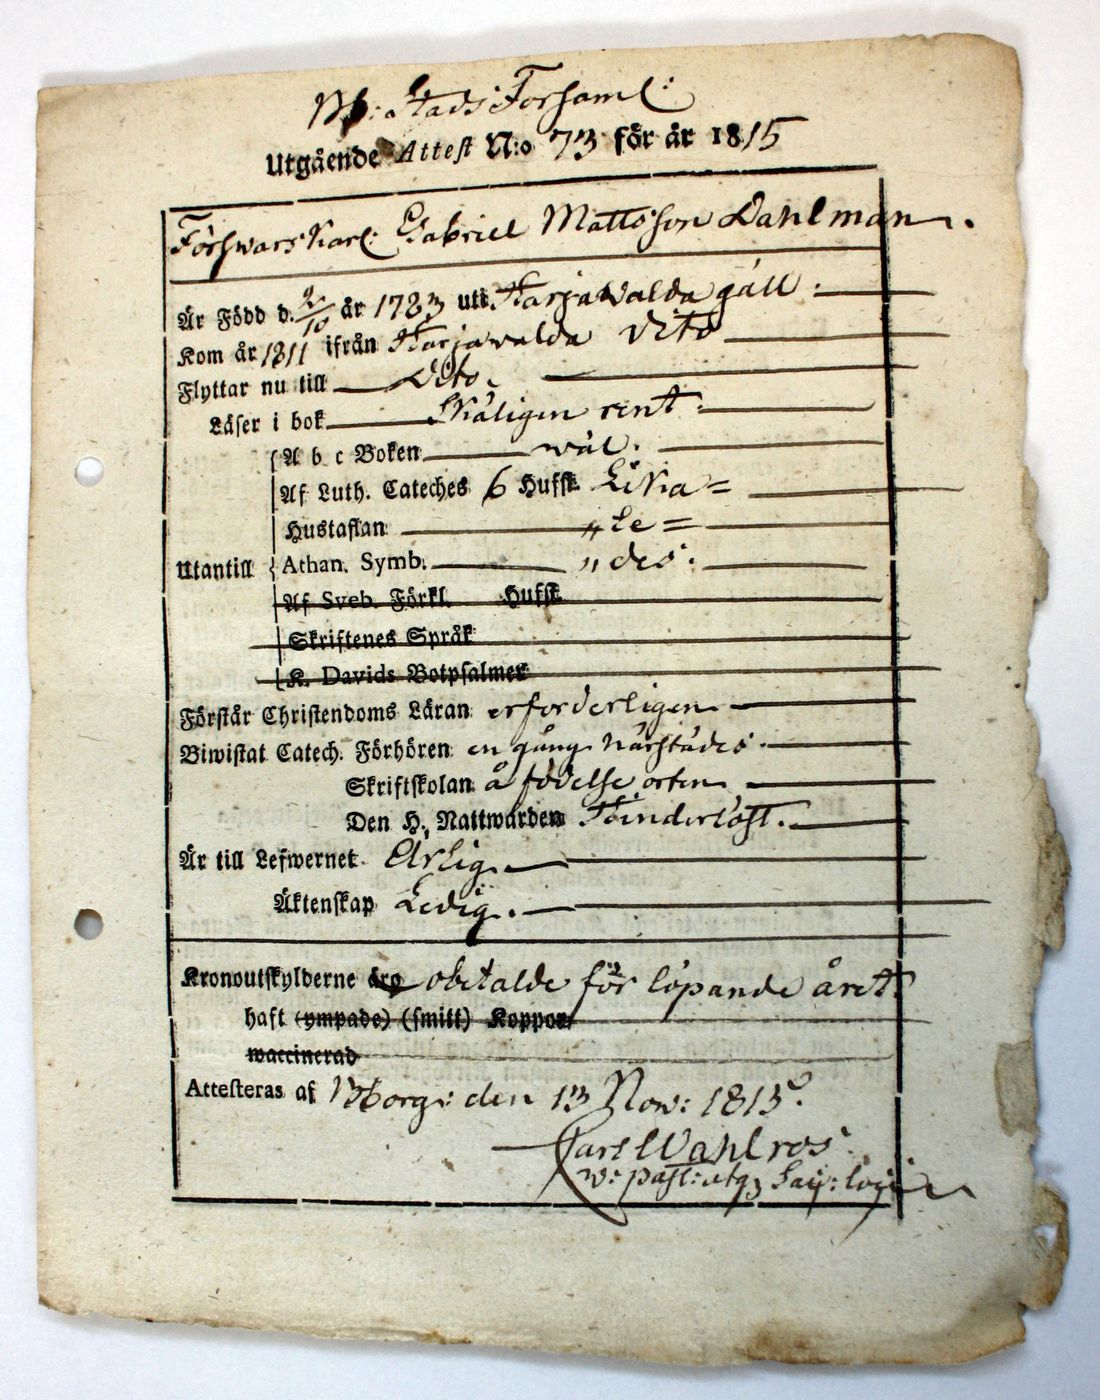 Stads Församl:
Utgående Attest N:o 73 för år 1815
Förswars Karl: Gabriel Mattsson Dahlman.
Är Född d. 2/10 år 1783 uti Harjawalda gäll.
Kom år 1811 ifrån Harjavalda Dito
Flyttar nu till Dito.
Läser i bok Skäligen rent.
A b c Boken wäl.
Af Luth. Cateches 6 Hufst. Lika=
Hustaflan „ le=
Utantill Athan. Symb. „ des.
Af Sveb. Förkl. Hufst.
Skriftenes Språk
K. Davids Botpsalmer
Förstår Christendoms Läran erforderligen
Biwistat Catech. Förhören en gång härstädes.
Skriftskolan å födelse orten
Den H. Nattwarden Oförhinderlöst.
Är till Lefwernet Ärlig.
Äktenskap Ledig.
Kronoutskylderne äro obetalde för löpande året.
haft (ympade) (smitt) Koppor
waccinerad
Attesteras af den 13 Nov: 1815.
Carl Wahlros